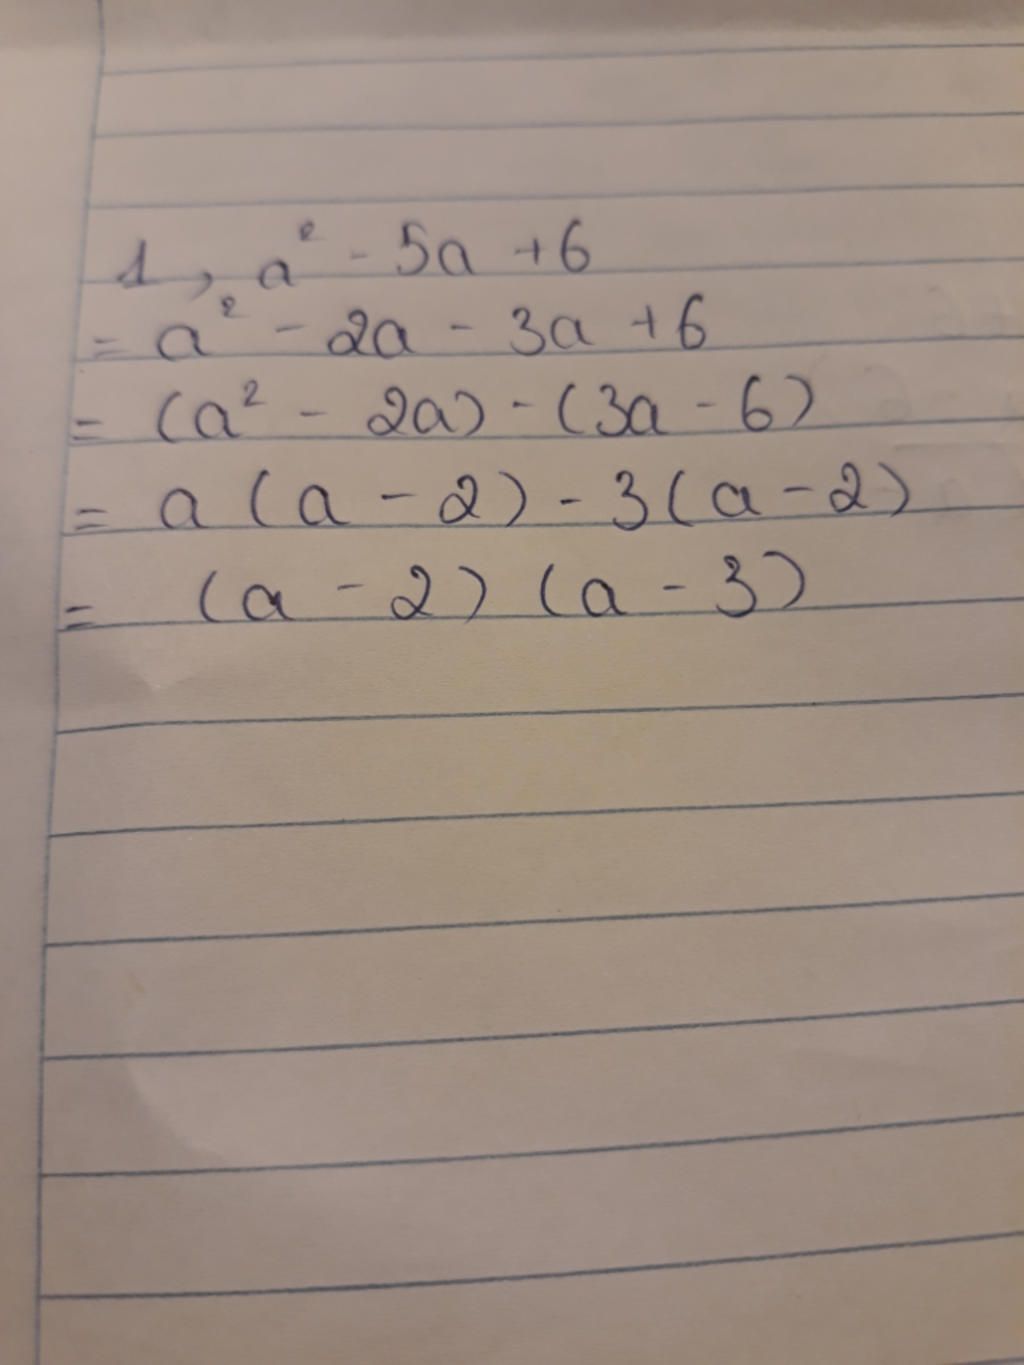 1, a² - 5a + 6
= a² - 2a - 3a + 6
= (a² - 2a) - (3a - 6)
= a (a - 2) - 3 (a - 2)
= (a - 2) (a - 3)